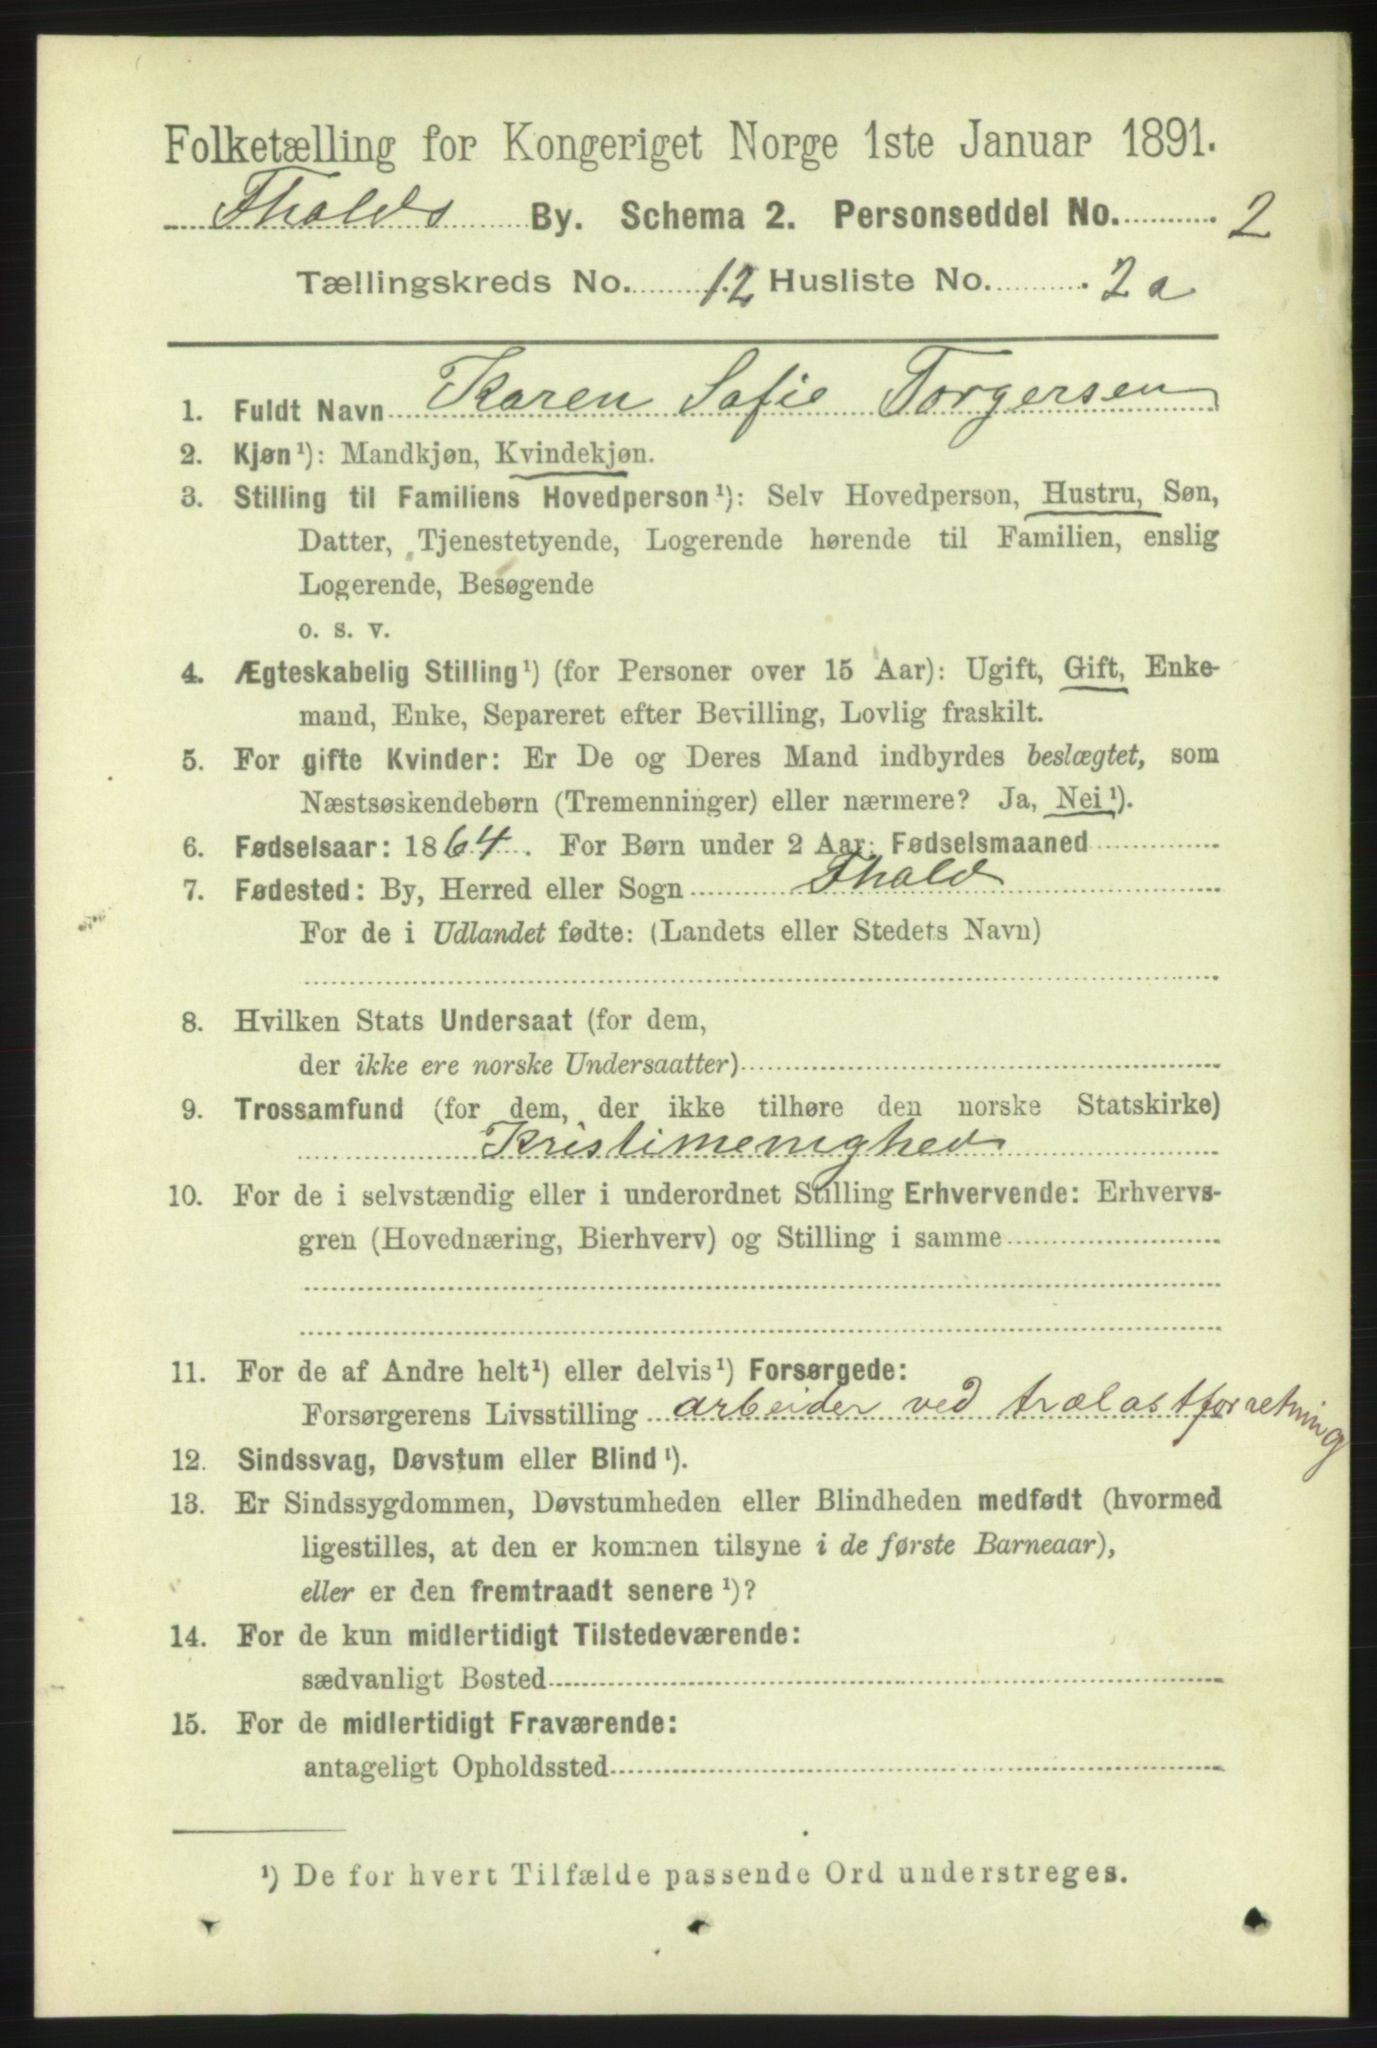 Folketælling for Kongeriget Norge 1ste Januar 1891.
Fhalds By. Schema 2. Personseddel No. 2
Tællingskreds No. 12 Husliste No. 2a
1. Fuldt Navn Karen Sofie Torgersen
2. Kjøn¹): Mandkjøn, Kvindekjøn.
3. Stilling til Familiens Hovedperson¹): Selv Hovedperson, Hustru, Søn,
Datter, Tjenestetyende, Logerende hørende til Familien, enslig
Logerende, Besøgende
o. s. v.
4. Ægteskabelig Stilling¹) (for Personer over 15 Aar): Ugift, Gift, Enke-
mand, Enke, Separeret efter Bevilling, Lovlig fraskilt.
5. For gifte Kvinder: Er De og Deres Mand indbyrdes beslægtet, som
Næstsøskendebørn (Tremenninger) eller nærmere? Ja, Nei¹).
6. Fødselsaar: 1864. For Børn under 2 Aar: Fødselsmaaned
7. Fødested: By, Herred eller Sogn Fhald
For de i Udlandet fødte: (Landets eller Stedets Navn)
8. Hvilken Stats Undersaat (for dem,
der ikke ere norske Undersaatter)
9. Trossamfund (for dem, der ikke tilhøre den norske Statskirke)
Kristimenighed
10. For de i selvstændig eller i underordnet Stilling Erhvervende: Erhvervs-
gren (Hovednæring, Bierhverv) og Stilling i samme
11. For de af Andre helt¹) eller delvis¹) Forsørgede:
Forsørgerens Livsstilling arbeider ved trælastforretning
12. Sindssvag, Døvstum eller Blind¹).
13. Er Sindssygdommen, Døvstumheden eller Blindheden medfødt (hvormed
ligestilles, at den er kommen tilsyne i de første Barneaar),
eller er den fremtraadt senere¹)?
14. For de kun midlertidigt Tilstedeværende:
sædvanligt Bosted
15. For de midlertidigt Fraværende:
antageligt Opholdssted
¹) De for hvert Tilfælde passende Ord understreges.